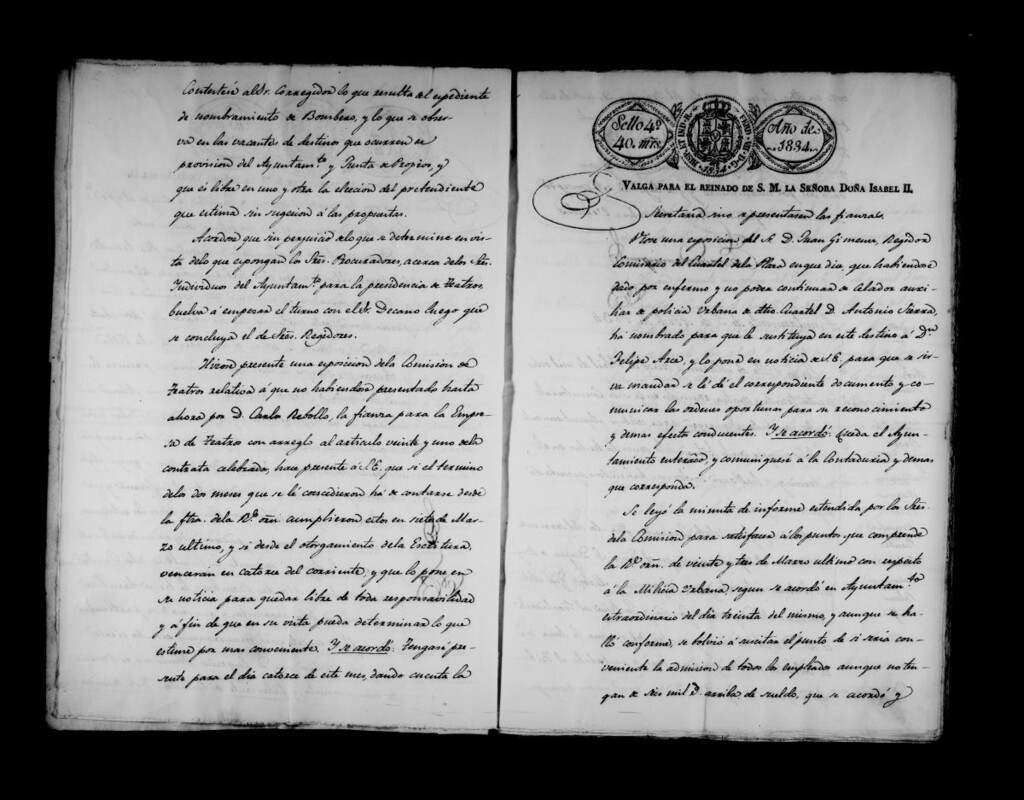 Contestará al Sr. Corregidor lo que resulta del espediente
de nombramiento de Bombero, y lo que se obser-
va en las vacantes de destinos que ocurren de
provision del Ayuntamto. y Junta de Propios, y
que es libre en uno y otra la eleccion del pretendiente
que estima sin sugecion á las propuestas.
Acordose que sin perjuicio de lo que se determine en vis-
ta de lo que espongan los Sres. Procuradores, acerca de los Sres.
Individuos del Ayuntamto. para la presidencia de Teatros,
buelva á empezar el turno con el Sr. Decano luego que
se concluya el de Sres. Regidores.
Hizose presente una esposicion de la Comision de
Teatros relativa á que no habiendose presentado hasta
ahora por D. Carlo Rebollo, la fianza para la Empre-
sa de Teatros con arreglo al articulo veinte y uno de la
contrata celebrada, hace presente á S.E. que si el termino
de los dos meses que se le concedieron há de contarse desde
la fha. de la Rl. orn. cumplieron estos en siete de Mar-
zo ultimo, y si desde el otorgamiento de la Escritura,
venceran en catorce del corriente, y que lo pone en
su noticia para quedar libre de toda responsavilidad
y á fin de que en su vista pueda determinar lo que
estime por mas conveniente. Y se acordó: Tengase pre-
sente para el dia catorce de este mes, dando cuenta la
Sello 4º
40. mrs.
1834
Año de
1834.
VALGA PARA EL REINADO DE S. M. LA SEÑORA DOÑA ISABEL II.
Secretaria sino se presentasen las fianzas.
Viose una esposicion del Sr. D. Juan Gimenez, Regidor
Comisario del Cuartel de la Plaza en que dice, que habiendose
dado por enfermo y no poder continuar de Celador auxi-
liar de policia Urbana de dho. Cuartel D. Antonio Sierra,
há nombrado para que le sustituya en este destino á Dn.
Felipe Arce, y lo pone en noticia de S.E. para que se sir-
va mandar se lé dé el correspondiente documento y co-
municar las ordenes oportunas para su reconocimiento
y demas efectos conducentes. Y se acordó: Queda el Ayun-
tamiento enterado, y comuniquese á la Contaduria y demas
que corresponda.
Se leyó la minuta de informe estendida por los Sres.
de la Comision para satisfacer á los puntos que comprende
la Rl. orn. de veinte y tres de Marzo ultimo con respecto
á la Milicia Urbana, segun se acordó en Ayuntamto.
extraordinario del dia treinta del mismo, y aunque se ha-
lló conforme, se bolvió á suscitar el punto de si sería con-
veniente la admision de todos los empleados aunque no ten-
gan de seis mil rs. arriba de sueldo, que se acordó y